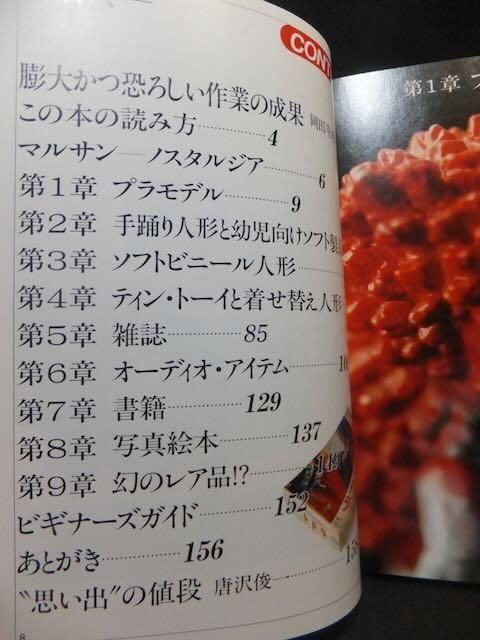 CONT
膨大かつ恐ろしい作業の成果 岡田斗
この本の読み方 4
マルサン―ノスタルジア 6
第1章 プラモデル 9
第2章 手踊り人形と幼児向けソフト製
第3章 ソフトビニール人形
第4章 ティン・トーイと着せ替え人形
第5章 雑誌 85
第6章 オーディオ・アイテム 10
第7章 書籍 129
第8章 写真絵本 137
第9章 幻のレア品!? 149
ビギナーズガイド 152
あとがき 156
〝思い出〟の値段 唐沢俊一 158
8
第1章